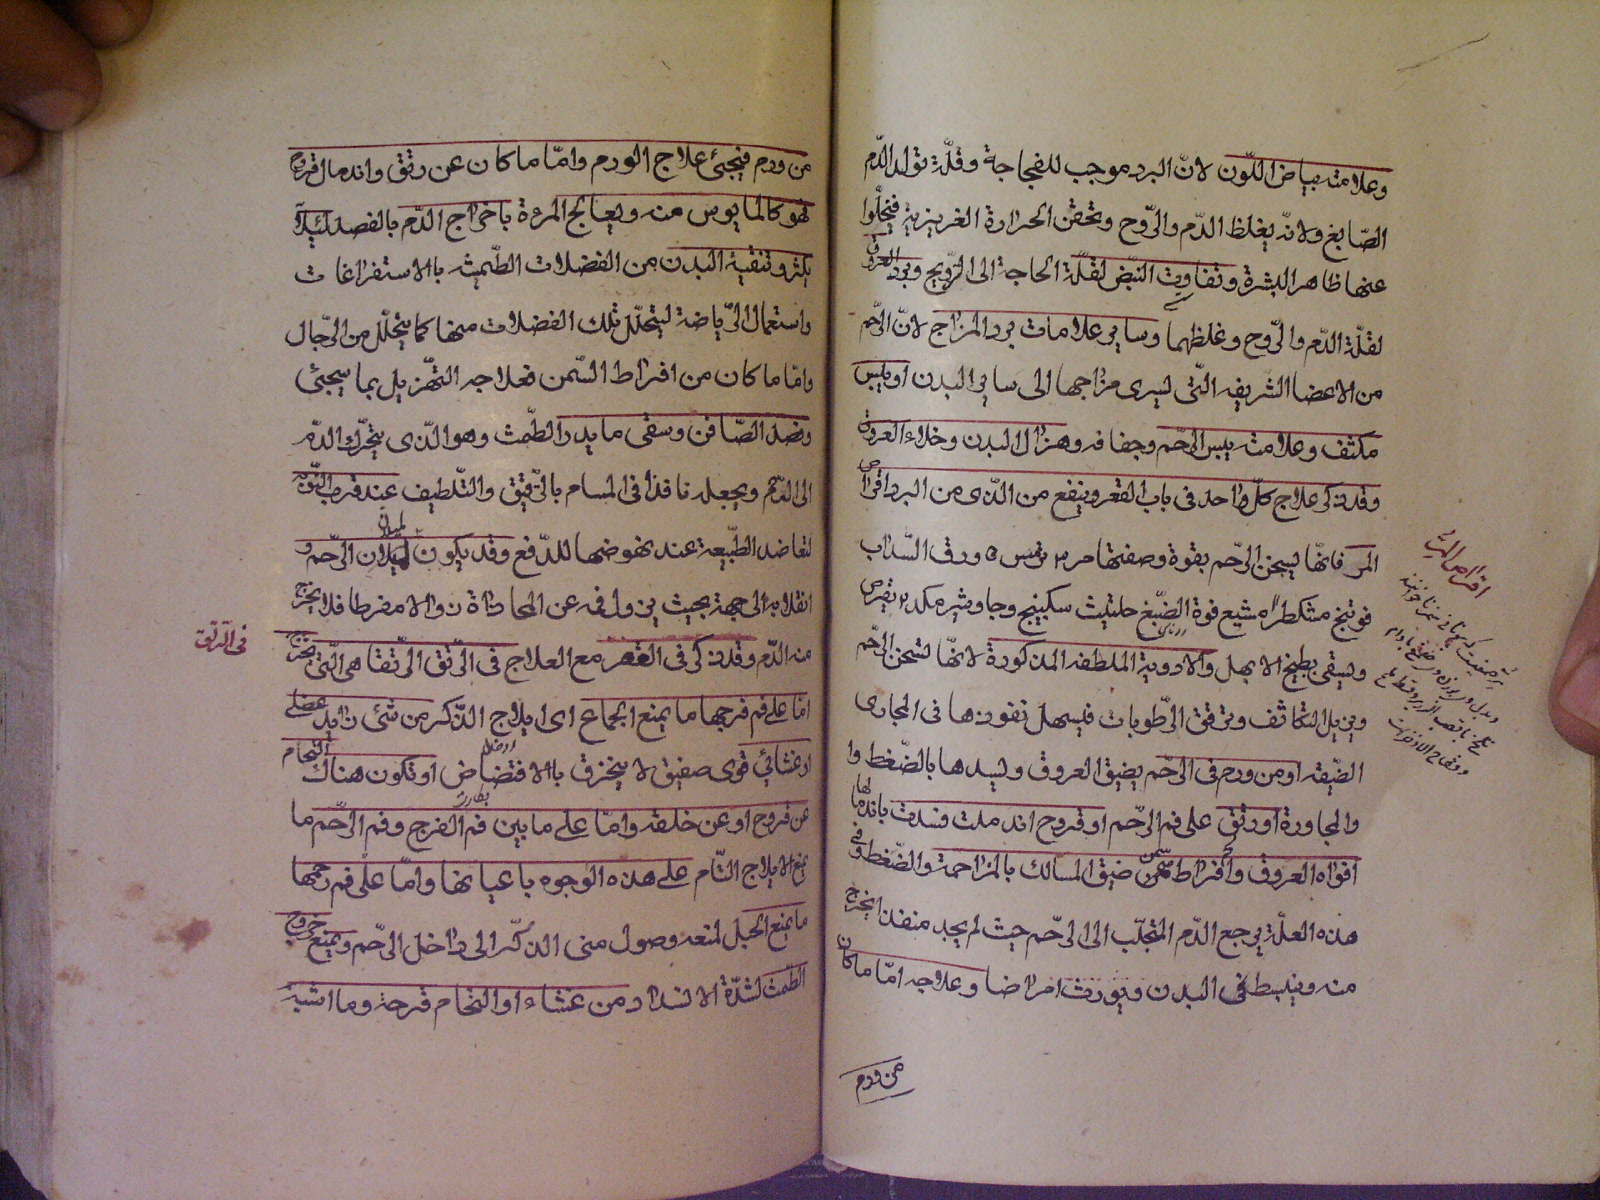 وعلامته بياض اللّون لانّ البرد موجب للفجاجة وقلّة تولد الدّم
الصّابغ ولانّه يغلظ الدّم والرّوح وتحقن الحرارة الغريزية فيخلوا
عنها ظاهر البشرة وتفاوت النبض لقلّة الحاجة الى الترويح وبرد العروق
لقلّة الدّم والرّوح وغلظهما وساير علامات برد المزاج لانّ الرّحم
من الاعضا الشريفه الّتى ليسرى مزاجها الى ساير البدن او يبس
مكثف وعلامته يبس الرحم وجفافه وهزال البدن وخلاء العروق
وقد ذكر علاج كلّ واحد فى باب العقر وينفع من الذّى من البرد اقراص
المر فانهّا يسخن الرّحم بقوة وصفتها مر ٣ ترمس ٥ ورق السّداب
فوتنج مشكطرامشيع فوة الصّبغ حلتيت سكبينج وجاوشير مكد ٢ تقرص
ويسقى بطبيخ الابهل والادوية الملطفه المذكورة لانهّا تسخن الرحّم
ويزيل التكاثف وترقق الرّطوبات فيسهل نفوذها فى المجارى
الضّيقه او من ورم فى الرحّم يضيق العروق ويسدها بالضّغط وا
والمجاورة او رتق على فم الرّحم او قروح اندملت وفسدت باندمالها
افواه العروق وافراط سمن ضيق المسالك بالمزاحمة والضّغط وفى
هذه العلّة يرجع الدّم المتجلّب الى الرّحم حيث لم يجد منفذا يخرج
منه وينبسط فى البدن ويورث امراضا وعلاجه امّا ما كان
من ورم
اقراص المر
من ورم فيجئ علاج الورم وامّا ما كان عن رتق واندمال قروح
فهو كالمايوس منه ويعالج المرءة باخراج الدّم بالفصد لئيلا
يكثر وتنقية البدن من الفضلات الطّمثيه بالاستفراغات
واستعمال الرّياضة ليتحلّل تلك الفضلات منها كما يتحلّل من الرّجال
وامّا ما كان من افراط السّمن فعلاجه التهزيل بما سيجئ
وفصد الصّافن وسقى ما يدر الطّمث وهو الذّى يتحرّك الدّم
الى الرّحم ويجعله نافذا فى المسام بالترّقيق والتّلطيف عند قرب النّوبه
لتعاضد الطّبيعة عند نهوضها للدّفع وقد يكون لميلان الرّحم و
انقلابه الى جهة بحيث يزول فمه عن المحاذاة زوالا مفرطا فلا يخرج
منه الدّم وقد ذكر فى العقر مع العلاج فى الرّتق الرّتقا هى الّتى يخرج
امّا على فم فرجها ما يمنع الجماع اى ايلاج الذّكر من شئ زايد عضلى
او غشائي قوى صفيق لا ينخرق بالافتضاض او تكون هناك التحام
عن قروح او عن خلقه وامّا على ما بين فم الفرج وفم الرحّم ما
يمنع الايلاج التّام على هذه الوجوه باعيانها وامّا على فم رحمها
ما يمنع الحبل لمنعه وصول منى الذّكر الى داخل الرحّم ويمنع خروج
الطّمث لشدّة الانسداد من غشاء او التحام قرحة وما اشبه
فى الرّتق